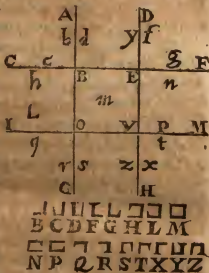 A D
b d y f
C c g F
h B E n
m
L
I O V P M
q t
r s z x
G H
B C D F G H L M
N P Q R S T X Y Z